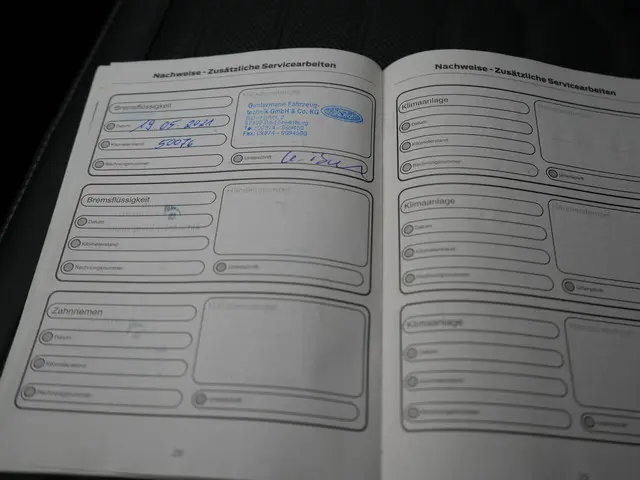 Nachweise - Zusätzliche Servicearbeiten
Bremsflüssigkeit
Datum 19.05.2021
Kilometerstand 50076
Rechnungsnummer
Händlerstempel
technik GmbH & Co. KG
Unterschrift
Bremsflüssigkeit
Datum
Kilometerstand
Rechnungsnummer
Händlerstempel
Unterschrift
Zahnriemen
Datum
Kilometerstand
Rechnungsnummer
Unterschrift
Nachweise - Zusätzliche Servicearbeiten
Klimaanlage
Datum
Kilometerstand
Rechnungsnummer
Unterschrift
Klimaanlage
Datum
Kilometerstand
Rechnungsnummer
Händlerstempel
Unterschrift
Klimaanlage
Datum
Kilometerstand
Rechnungsnummer
Unterschrift